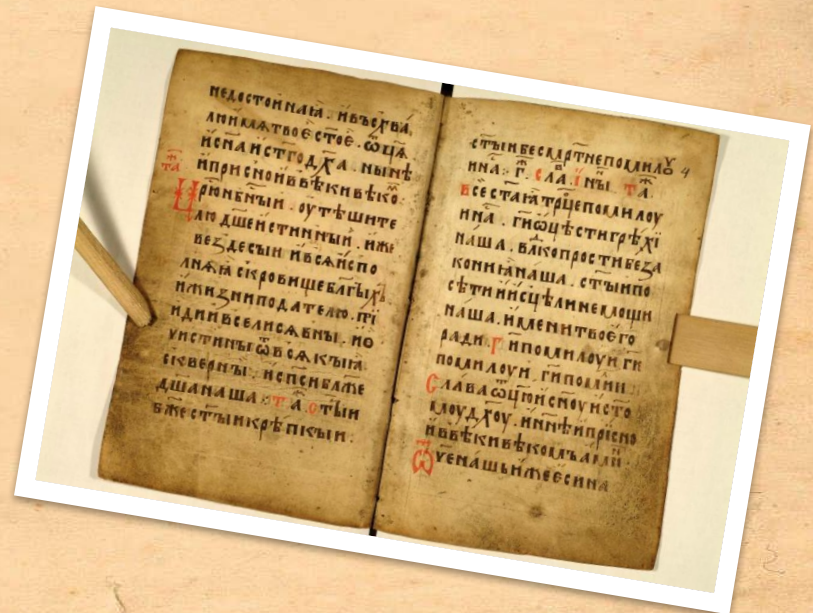 недостоинаꙗ. ивъсхва,
лѝтикаѧтвоестое. ѿц҃ѧ
исн҃аистгод҃ха. нынѣ
т҃а иприсноиввѣкивѣко҃
Ц҃рюнбн҃ыи. оутѣшите
люд҃шеистинныи. иже
вездесыи ивсѧиспо
лнѧꙗ скровищеблг҃ыхъ
ижизниподателю. пріи
идииивселисѧвны. ио
чистиныѿвсѧкыꙗ
скверны. испс҃иблж҃е
дш҃анаша. т҃а. ст҃ыи
бж҃естыикрѣпкыи.
ст҃ыибесмр҃тнепомилꙋ 4
ина. г҃. сла҃. ін҃ы. т҃а.
всестаꙗтр҃цепомилоу
ина. ги҃ѿц҃ѣстигрѣхі
наша. влк҃опростибеза
кониꙗнаша. ст҃ыипо
сѣтииисцѣлинемощи
наша. именитвоего
ради. г҃ и҃помилоуи ги҃
помилоуи. ги҃помии
Славаѿц҃юисн҃оуисто
моуд҃хоу. инн҃ѣиприсно
иввѣкивѣкомъами҃
Ѿ҃ченашьижеесина